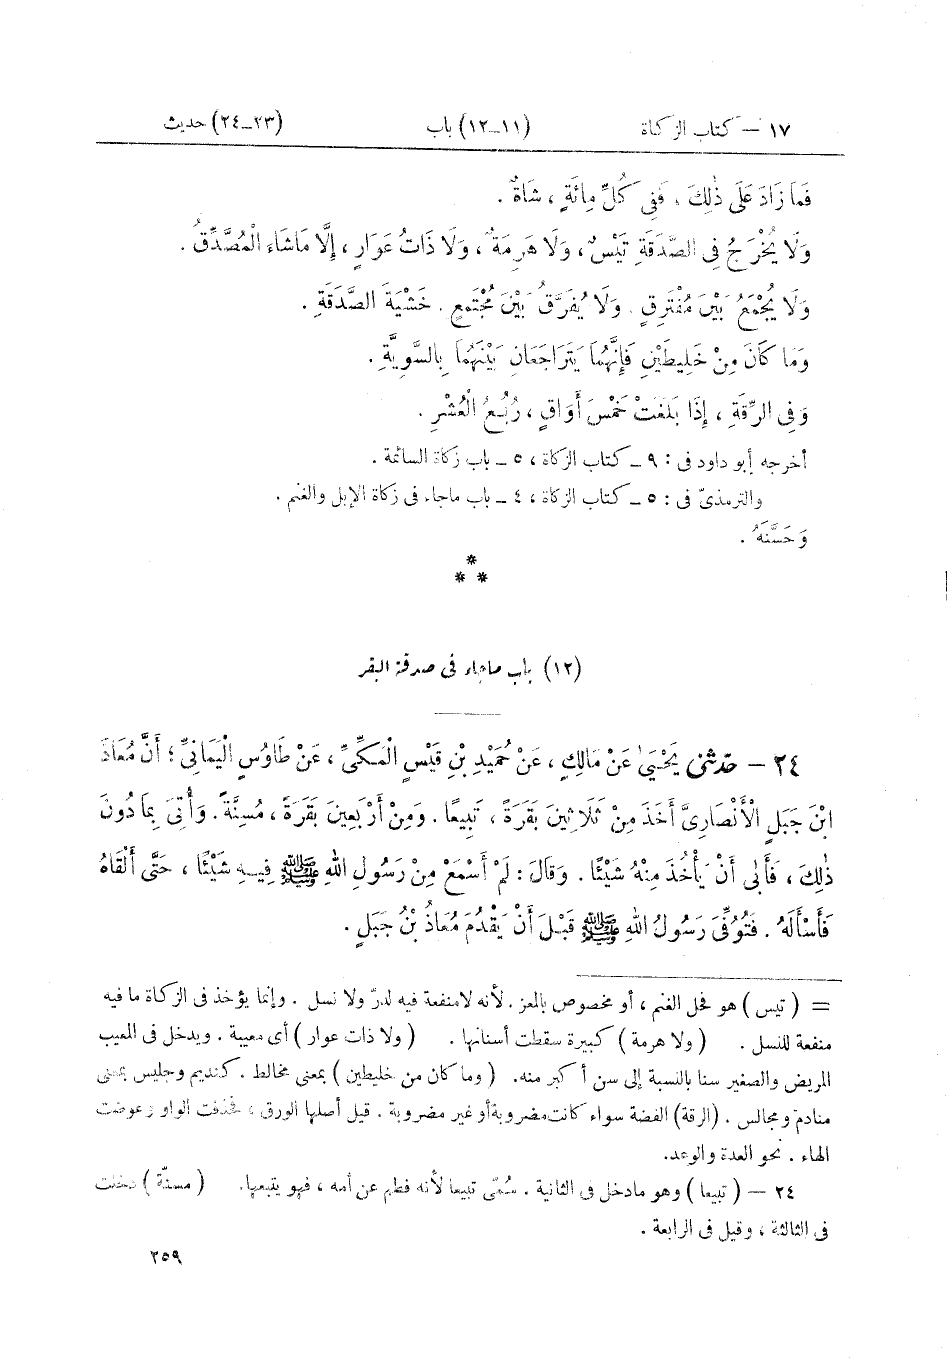 ١٧ – كتاب الزكاة (١١–١٢) باب (٢٣–٢٤) حديث
فَمَا زَادَ عَلَى ذٰلِكَ ، فَفِي كُلِّ مِائَةٍ ، شَاةٌ .
وَلَا يُخْرَجُ فِي الصَّدَقَةِ تَيْسٌ ، وَلَا هَرِمَةٌ ، وَلَا ذَاتُ عَوَارٍ ، إِلَّا مَاشَاءَ الْمُصَّدِّقُ .
وَلَا يُجْمَعُ بَيْنَ مُفْتَرِقٍ . وَلَا يُفَرَّقُ بَيْنَ مُجْتَمِعٍ . خَشْيَةَ الصَّدَقَةِ .
وَمَا كَانَ مِنْ خَلِيطَيْنِ فَإِنَّهُمَا يَتَرَاجَعَانِ بَيْنَهُمَا بِالسَّوِيَّةِ .
وَفِي الرِّقَةِ ، إِذَا بَلَغَتْ خَمْسَ أَوَاقٍ ، رُبُعُ الْعُشْرِ .
أخرجه أبو داود فى : ٩ – كتاب الزكاة ، ٥ – باب زكاة السائمة .
والترمذىّ فى : ٥ – كتاب الزكاة ، ٤ – باب ماجاء فى زكاة الإبل والغنم .
وَحَسَّنَهُ .
*
* *
(١٢) باب ماجاء فى صدقة البقر
٢٤ – حَدَّثَنِي يَحْيَىٰ عَنْ مَالِكٍ ، عَنْ حُمَيْدِ بْنِ قَيْسٍ الْمَكِّيِّ ، عَنْ طَاوُسٍ الْيَمَانِيِّ ؛ أَنَّ مُعَاذَ
ابْنَ جَبَلٍ الْأَنْصَارِىَّ أَخَذَ مِنْ ثَلَاثِينَ بَقَرَةً ، تَبِيعًا . وَمِنْ أَرْبَعِينَ بَقَرَةً ، مُسِنَّةً . وَأُتِىَ بِمَا دُونَ
ذٰلِكَ ، فَأَبَى أَنْ يَأْخُذَ مِنْهُ شَيْئًا . وَقَالَ : لَمْ أَسْمَعْ مِنْ رَسُولِ اللهِ ﷺ فِيهِ شَيْئًا ، حَتَّى أَلْقَاهُ
فَأَسْأَلَهُ . فَتُوُفِّىَ رَسُولُ اللهِ ﷺ قَبْلَ أَنْ يَقْدُمَ مُعَاذُ بْنُ جَبَلٍ .
= ( تيس ) هو فحل الغنم ، أو مخصوص بالمعز . لأنه لامنفعة فيه لدرّ ولا نسل . وإنما يؤخذ فى الزكاة ما فيه
منفعة للنسل . ( ولا هرمة ) كبيرة سقطت أسنانها . ( ولا ذات عوار ) أى معيبة . ويدخل فى المعيب
المريض والصغير سنا بالنسبة إلى سن أكبر منه . ( وما كان من خليطين ) بمعنى مخالط . كنديم وجليس بمعنى
منادم ومجالس . (الرقة) الفضة سواء كانت مضروبة أو غير مضروبة . قيل أصلها الورق ، فحذفت الواو وعوضت
الهاء . نحو العدة والوعد.
٢٤ – ( تبيعا ) وهو مادخل فى الثانية . سُمّى تبيعا لأنه فطم عن أمه ، فهو يتبعها . ( مسنّة ) دخلت
فى الثالثة ، وقيل فى الرابعة .
٢٥٩